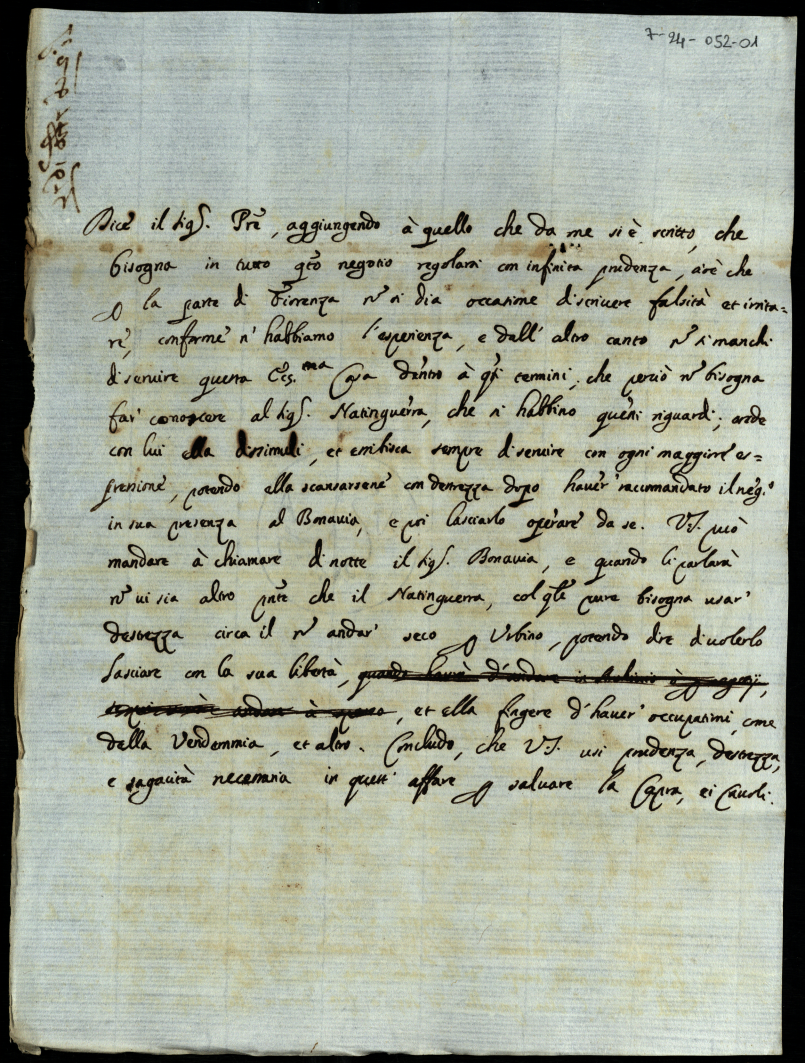 7-24-052-01
Dice il Sig.r P̄rē, aggiungendo à quello che da me si è scritto, che
bisogna in tutto q̄to negotio regolarsi con infinita prudenza, acciò che
la parte di Fiorenza n̄ si dia occasione di scrivere falsità et irrita=
re, conforme n' habbiamo l'esperienza, e dall' altro canto n̄ si manchi
di servire questa Ecc.ma Casa dentro à q̄ti termini; che perciò n̄ bisogna
far' conoscere al Sig.r Natinguerra, che si habbino questi riguardi;
con lui ella dissimuli, et esibisca sempre di servire con ogni maggior es=
pressione, potendo ella scansarsene con destrezza dopo haver' raccomandato il neg.o
in sua presenza al Bonavia, e poi lasciarlo operare da se. V.S. può
mandare à chiamare di notte il Sig.r Bonavia, e quando li parlarà
n̄ vi sia altro p̄nte che il Natinguerra, col q̄le pure bisogna usar'
destrezza circa il n̄ andar' seco Urbino, potendo dire di volerlo
lasciare con la sua libertà,
, et ella fingere d'haver' occupationi, come
della Vendemmia, et altro. Concludo, che V.S. usi prudenza, destrezza,
e sagacità necessaria in questi affare salvare la Capra, e i Cavoli.